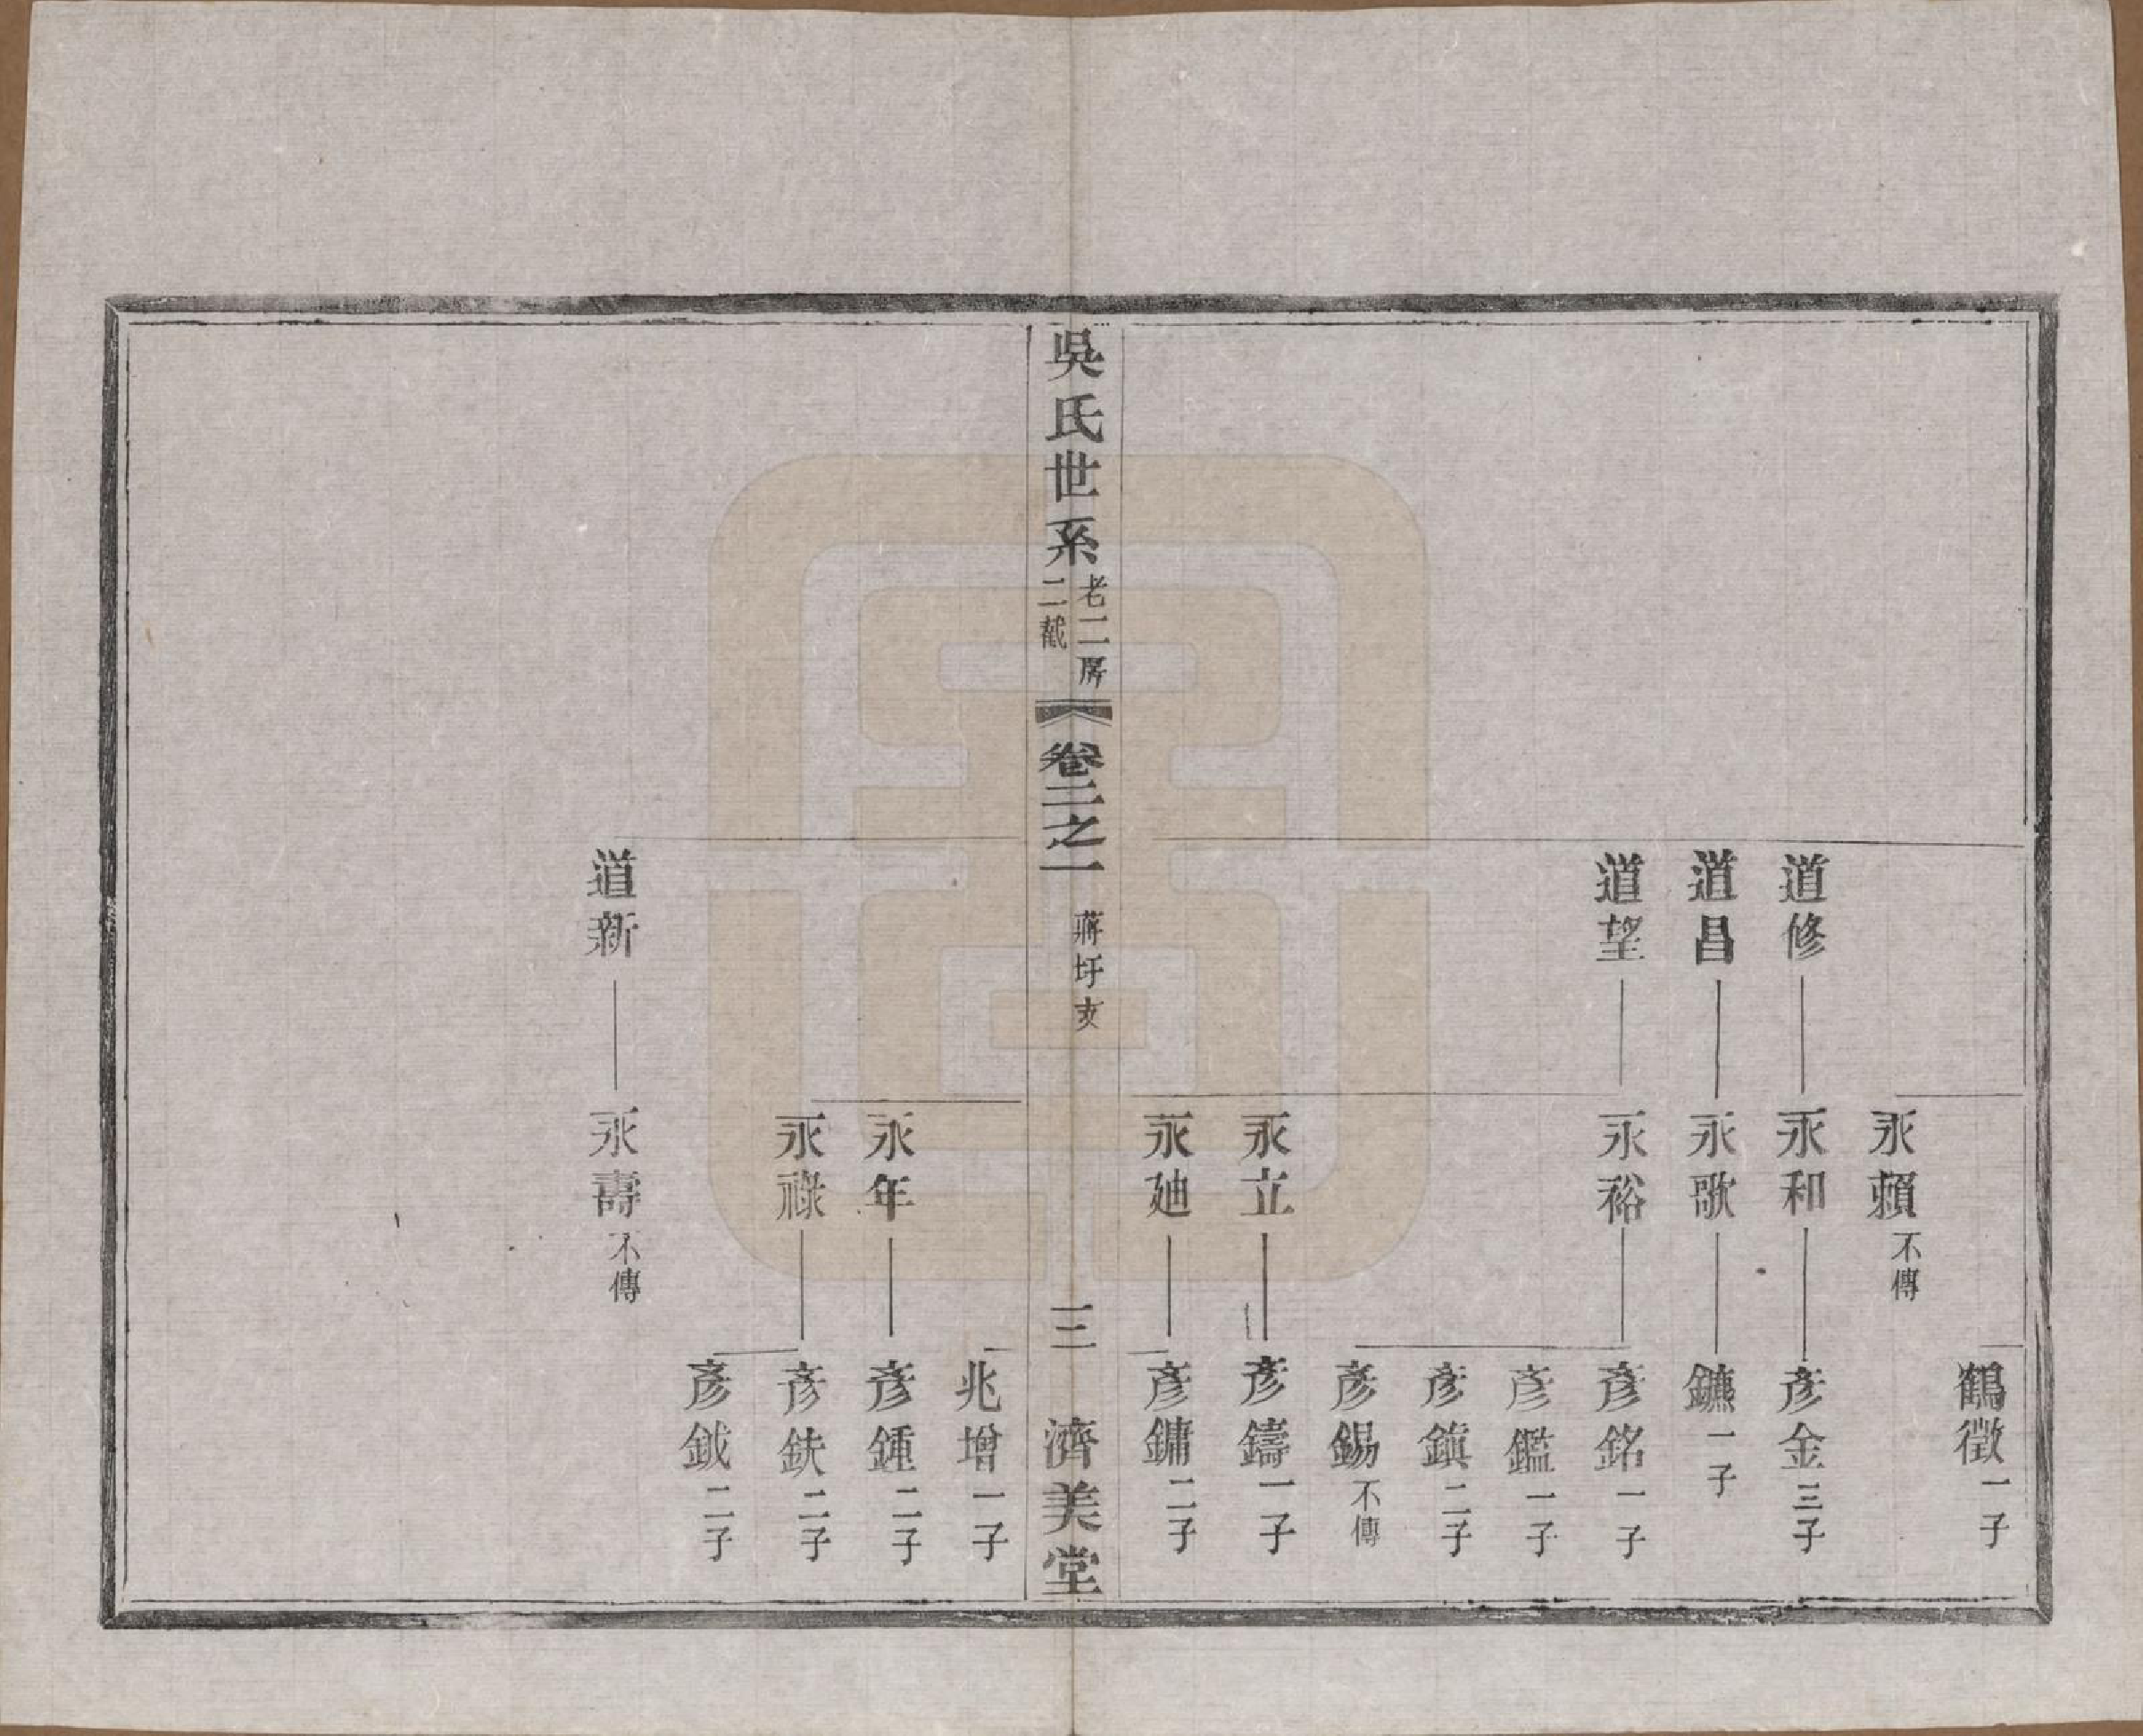 鶴徵一子
永賴不傳
道修
永和
彥金三子
道昌
永歌
鑣一子
道望
永裕
彥銘一子
彥鑑一子
彥鎮二子
彥錫不傳
永立
彥鑄一子
永廸
彥鏞二子
吳氏世系
老二房
二截
卷二之一
蔣圩
三
濟美堂
兆增一子
永年
彥鍾二子
永祿
彥鈇二子
彥鉞二子
道新
永壽不傳